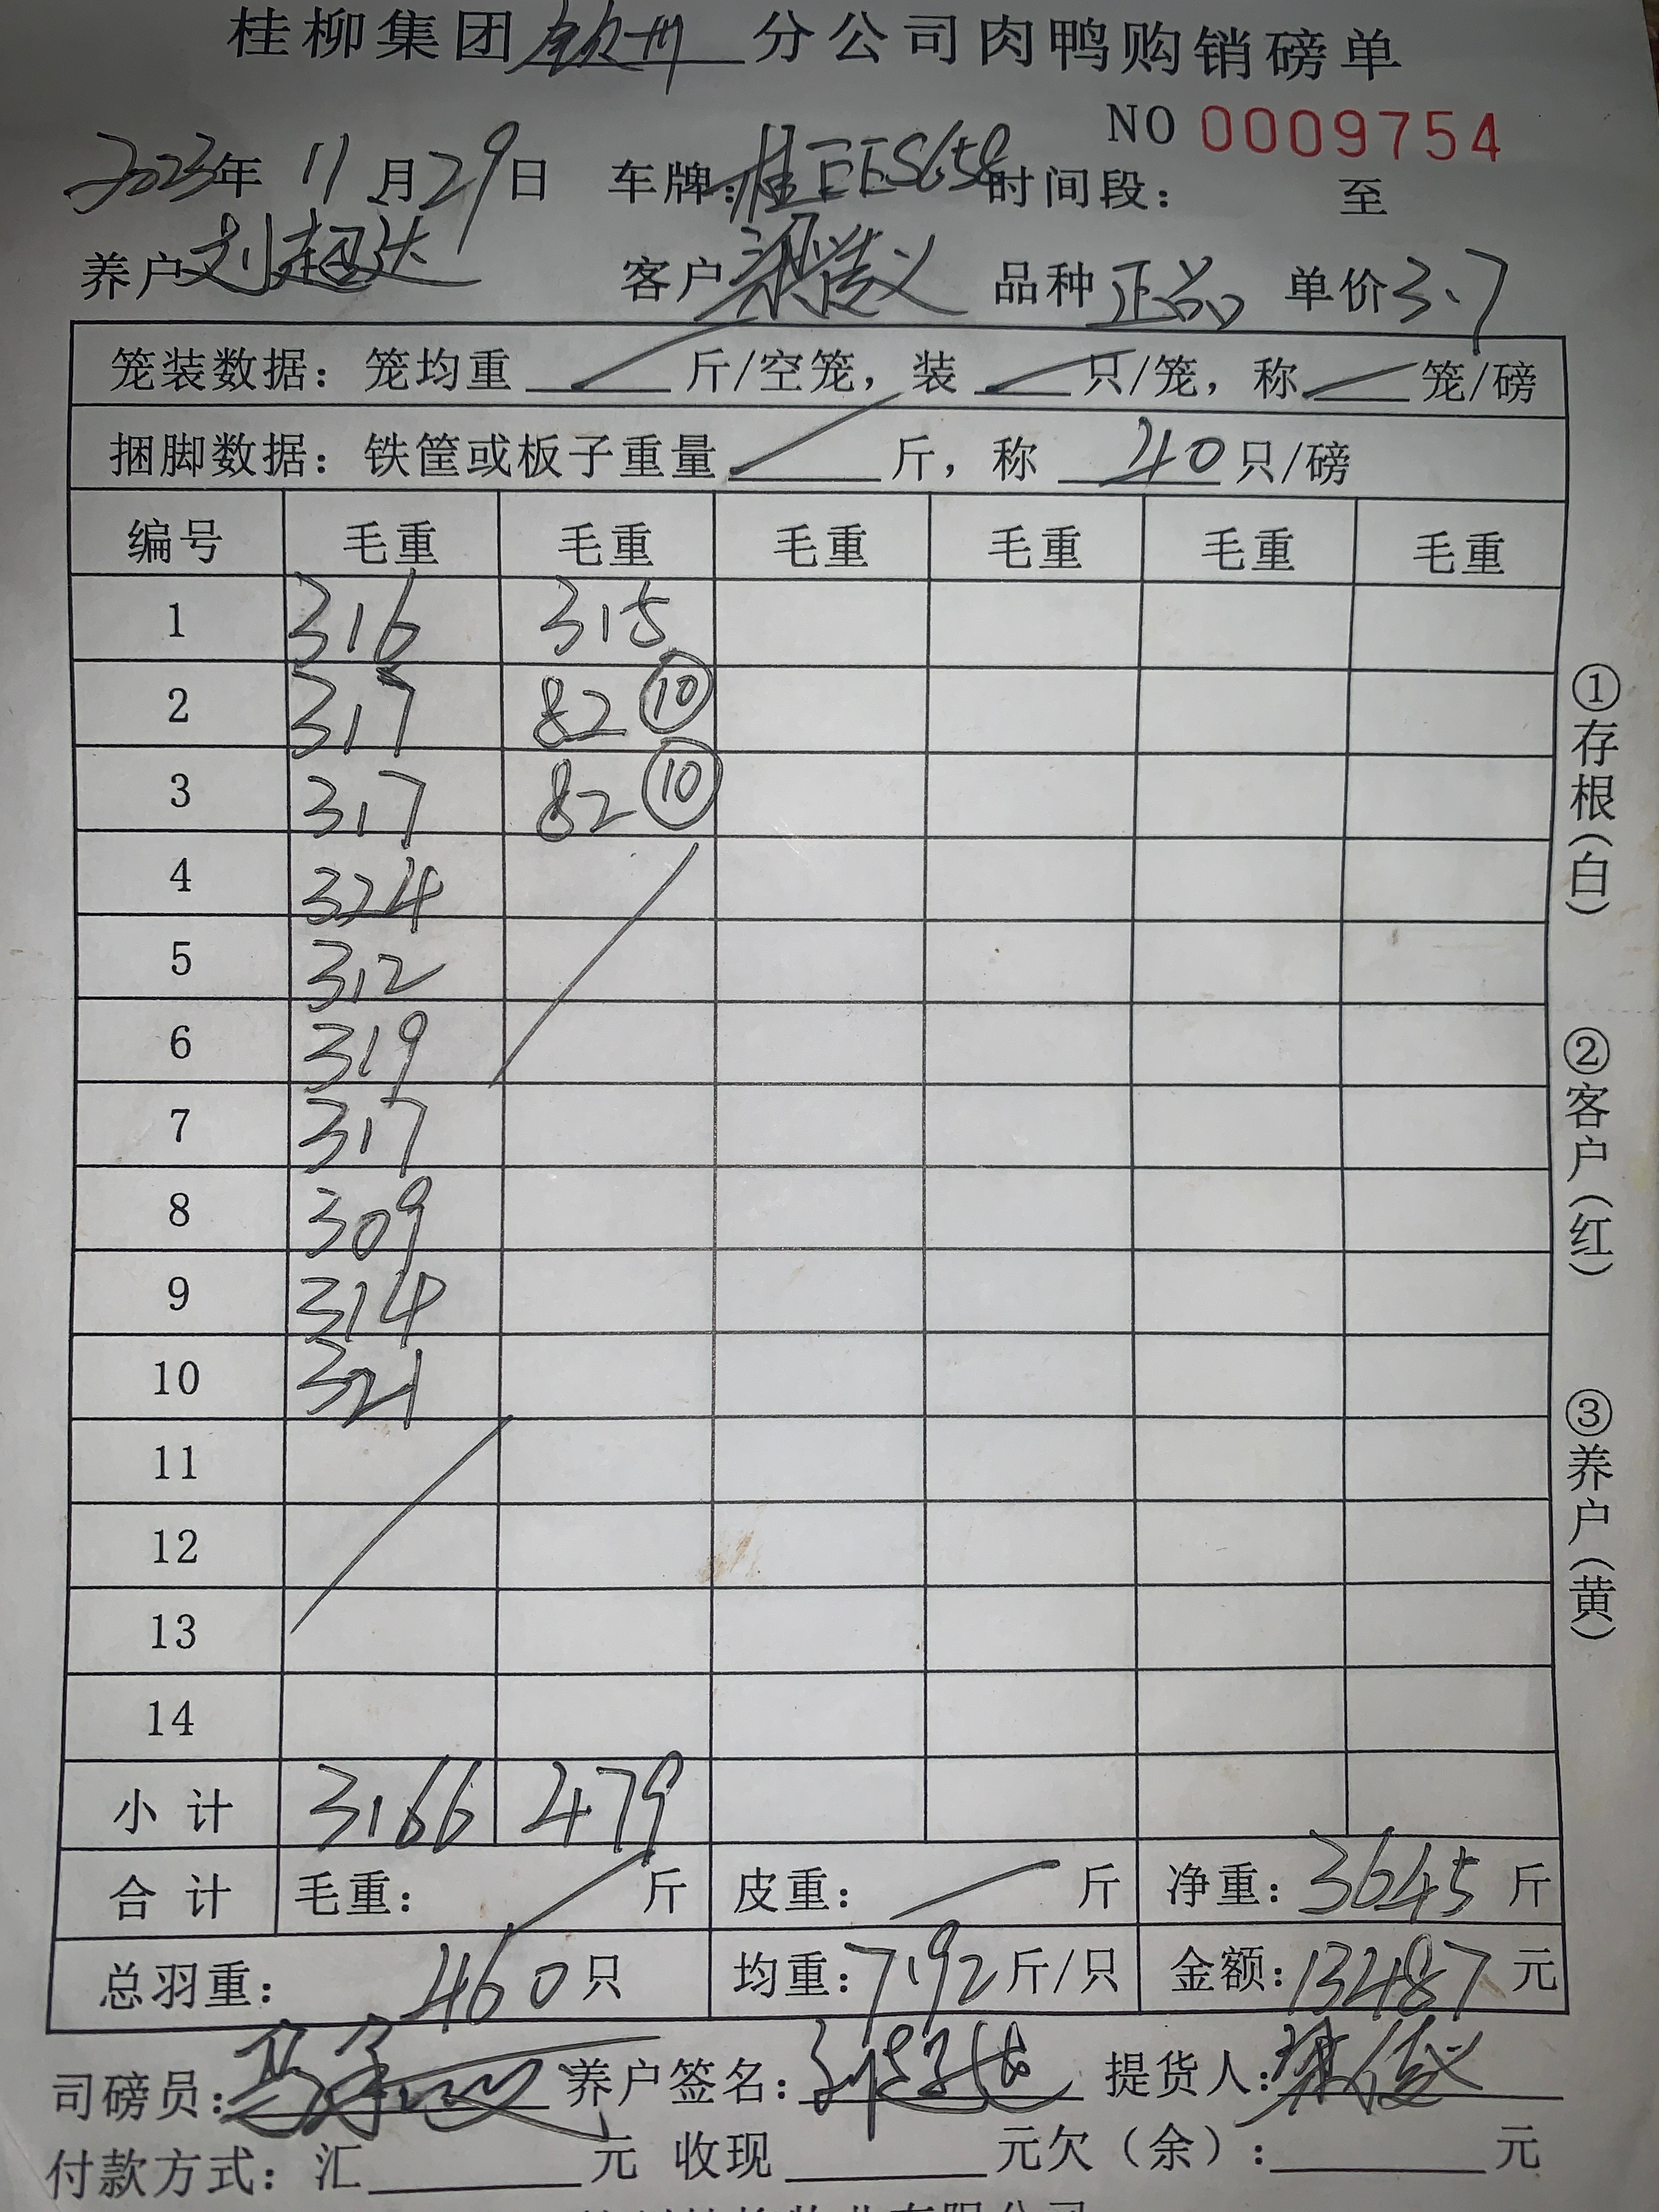 桂柳集团钦州分公司肉鸭购销磅单
NO 0009754
2023年 11月29日 车牌:桂EES658 时间段: 至
养户刘超达 客户梁俊义 品种正品 单价3.7
笼装数据:笼均重 斤/空笼,装 只/笼,称 笼/磅
捆脚数据:铁筐或板子重量 斤,称 40只/磅
编号 毛重 毛重 毛重 毛重 毛重 毛重
1 316 315
2 317 82 ⑩
3 317 82 ⑩
4 324
5 312
6 319
7 317
8 309
9 314
10 321
11
12
13
14
小计 3166 479
合计 毛重: 斤 皮重: 斤 净重:3645斤
总羽重: 460只 均重:7.92斤/只 金额:13487元
司磅员: 养户签名:刘超达 提货人:梁俊义
付款方式:汇 元 收现 元欠(余): 元
①存根(白)
②客户(红)
③养户(黄)